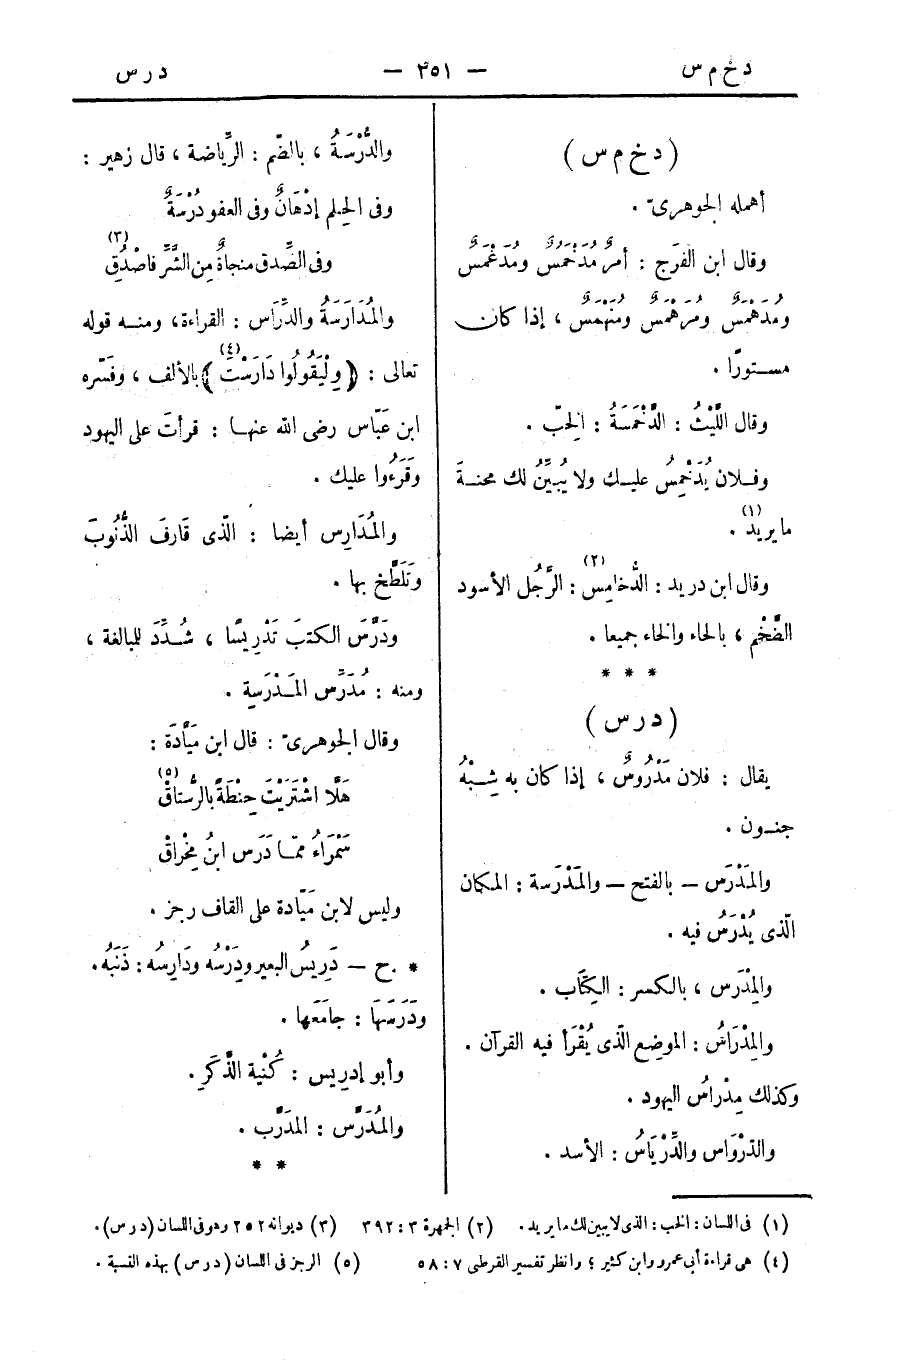 دخ م س — ٣٥١ — درس
( د خ م س )
أهمله الجوهرىّ .
وقال ابن الفَرَج : أمرٌ مُدَخْمَسٌ ومُدَغْمَسٌ
ومُدَهْمَسٌ ومُرَهْمَسٌ ومُنَهْمَسٌ ، إذا كان
مستورًا .
وقال اللَّيْثُ : الدَّخْمَسَةُ : الخِبّ .
وفلان يُدَخْمِسُ عليك ولا يُبَيِّنُ لك محنةَ
ما يريد(١) .
وقال ابن دريد : الدُّخامِس(٢) : الرَّجُل الأسود
الضَّخْم ، بالحاء والخاء جميعا .
* * *
( د ر س )
يقال : فلان مَدْرُوسٌ ، إذا كان به شِبْهُ
جنون .
والمَدْرَس – بالفتح – والمَدْرَسة : المكان
الّذى يُدْرَسُ فيه .
والمِدْرَس ، بالكسر : الكِتَاب .
والمِدْرَاسُ : الموضع الّذى يُقْرَأ فيه القرآن .
وكذلك مِدْراسُ اليهود .
والدِّرْوَاس والدِّرْيَاسُ : الأسد .
والدُّرْسَةُ ، بالضّم : الرِّياضة ، قال زهير :
وفى الحِلم إدْهَانٌ وفى العفو دُرْسَةٌ
وفى الصِّدق منجاةٌ مِن الشَّرِّ فاصْدُقِ(٣)
والمُدَارَسَةُ والدِّرَاس : القراءة، ومنه قوله
تعالى : ﴿ ولْيَقُولُوا دَارَسْتَ(٤) ﴾ بالألف ، وفسّره
ابن عَبّاس رضى الله عنهما : قرأتَ على اليهود
وقَرَءُوا عليك .
والمُدَارِس أيضا : الّذى قَارَفَ الذُّنُوبَ
وتَلَطَّخ بها .
ودَرَّسَ الكتبَ تَدْرِيسًا ، شُدِّدَ للمبالغة ،
ومنه : مُدَرِّس المَدْرَسةِ .
وقال الجوهرىّ : قال ابن مَيَّادَة :
هَلَّا اشْتَرَيْتَ حِنْطَةً بالرُّسْتاقْ(٥)
سَمْراءَُ ممّا دَرَس ابنُ مِخْراقْ
وليس لابن مَيّادة على القاف رجز .
* ح – دَرِيسُ البعير ودَرْسُه ودَارِسُه : ذَنَبُه .
ودَرَسَهَا : جامَعَها .
وأبو إدريس : كُنْية الذَّكَرِ .
والمُدَرَّس : المدَرَّب .
* *
(١) فى اللسان : الخب : الذى لا يبين لك ما يريد . (٢) الجمهرة ٣ : ٣٩٢ (٣) ديوانه ٢٥٢ وهو فى اللسان ( درس ) .
(٤) هى قراءة أبى عمرو وابن كثير ؛ وانظر تفسير القرطبى ٧ : ٥٨ (٥) الرجز فى اللسان ( درس ) بهذه النسبة .